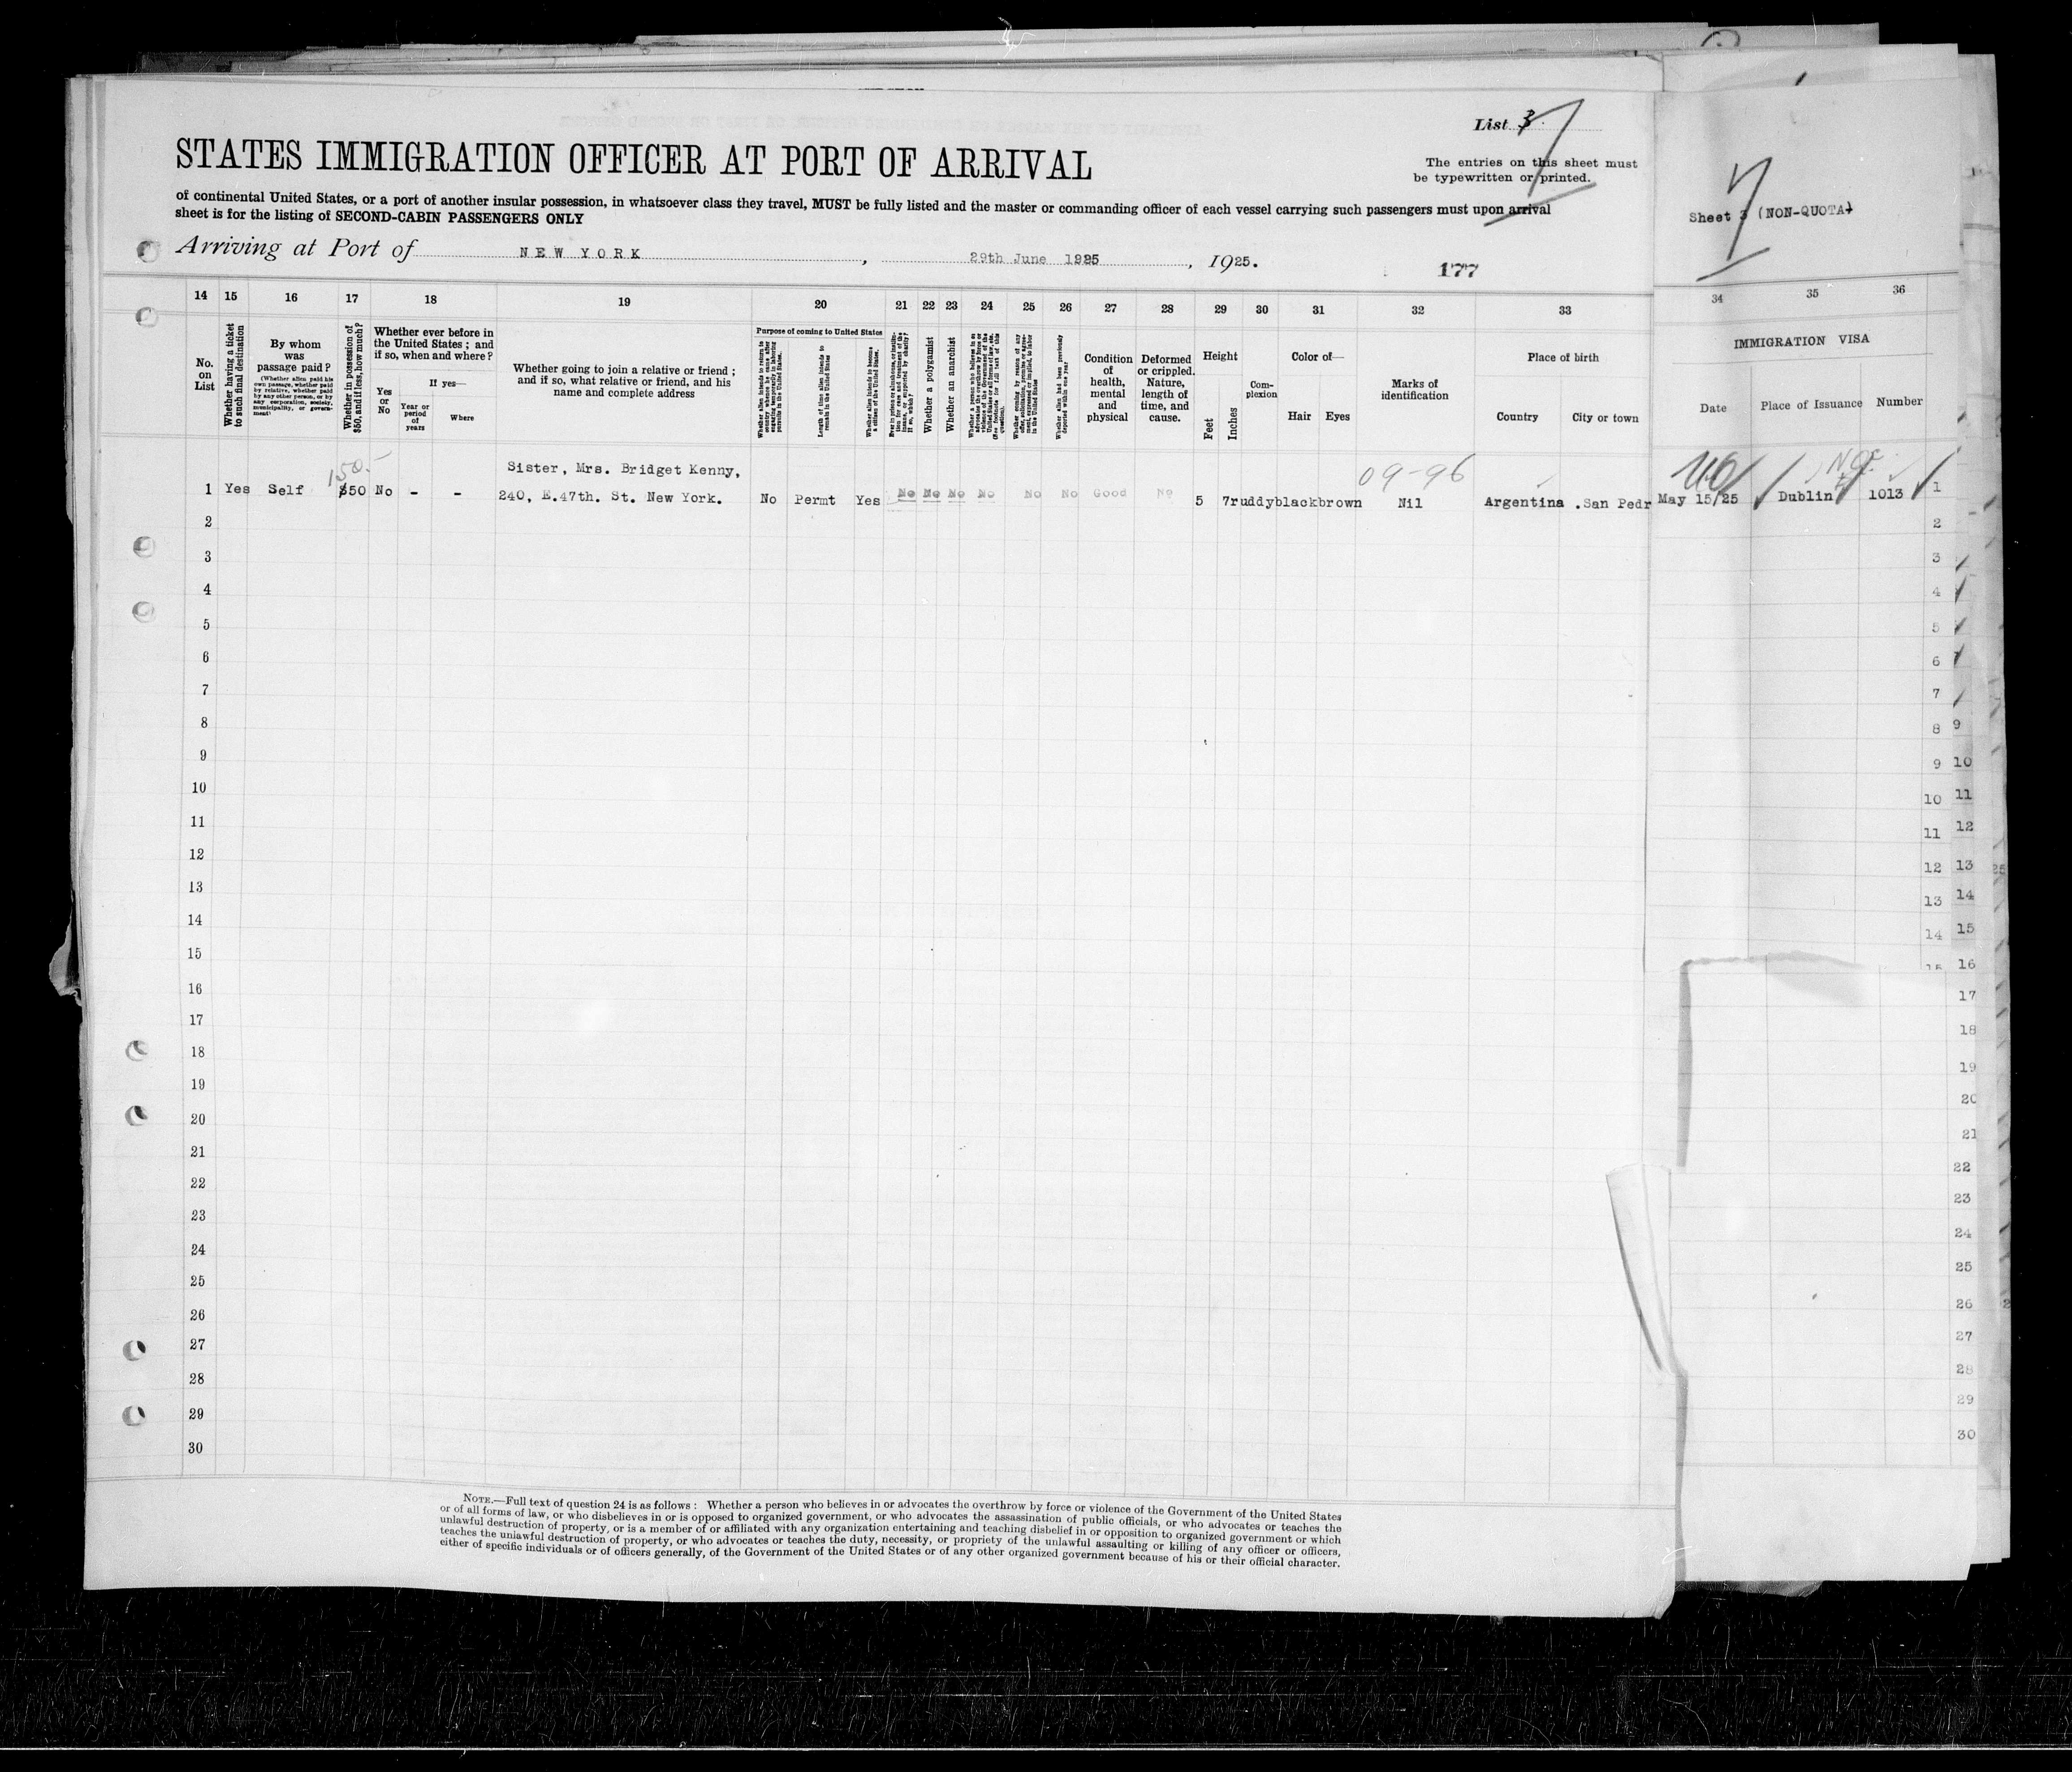 List 3
STATES IMMIGRATION OFFICER AT PORT OF ARRIVAL
The entries on this sheet must
be typewritten or printed.
of continental United States, or a port of another insular possession, in whatsoever class they travel, MUST be fully listed and the master or commanding officer of each vessel carrying such passengers must upon arrival
sheet is for the listing of SECOND-CABIN PASSENGERS ONLY
Sheet 3 (NON-QUOTA)
Arriving at Port of NEW YORK, 29th June 1925, 1925.
177
14 15 16 17 18 19 20 21 22 23 24 25 26 27 28 29 30 31 32 33 34 35 36
No. on List
Whether having a ticket to such final destination
By whom was passage paid?
(Whether alien paid his own passage, whether paid by relative, whether paid by any other person, or by any corporation, society, municipality, or government)
Whether in possession of $50, and if less, how much?
Whether ever before in the United States; and if so, when and where?
Yes or No
If yes—
Year or period of years
Where
Whether going to join a relative or friend; and if so, what relative or friend, and his name and complete address
Purpose of coming to United States
Whether alien intends to return to country whence he came after engaging temporarily in laboring pursuits in the United States.
Length of time alien intends to remain in the United States
Whether alien intends to become a citizen of the United States.
Whether a polygamist
Whether an anarchist
Whether alien had been previously deported within one year
Condition of health, mental and physical
Deformed or crippled. Nature, length of time, and cause.
Height
Feet
Inches
Complexion
Color of—
Hair
Eyes
Marks of identification
Place of birth
Country
City or town
IMMIGRATION VISA
Date
Place of Issuance
Number
150.-
Sister, Mrs. Bridget Kenny,
09-96
1 Yes Self $50 No - - 240, E.47th. St. New York. No Permt Yes No No No No No No Good No 5 7 ruddy black brown Nil Argentina .San Pedr May 15/25 Dublin 1013 1
2
3
4
5
6
7
8
9
10
11
12
13
14
15
16
17
18
19
20
21
22
23
24
25
26
27
28
29
30
NOTE.—Full text of question 24 is as follows: Whether a person who believes in or advocates the overthrow by force or violence of the Government of the United States
or of all forms of law, or who disbelieves in or is opposed to organized government, or who advocates the assassination of public officials, or who advocates or teaches the
unlawful destruction of property, or is a member of or affiliated with any organization entertaining and teaching disbelief in or opposition to organized government or which
teaches the unlawful destruction of property, or who advocates or teaches the duty, necessity, or propriety of the unlawful assaulting or killing of any officer or officers,
either of specific individuals or of officers generally, of the Government of the United States or of any other organized government because of his or their official character.